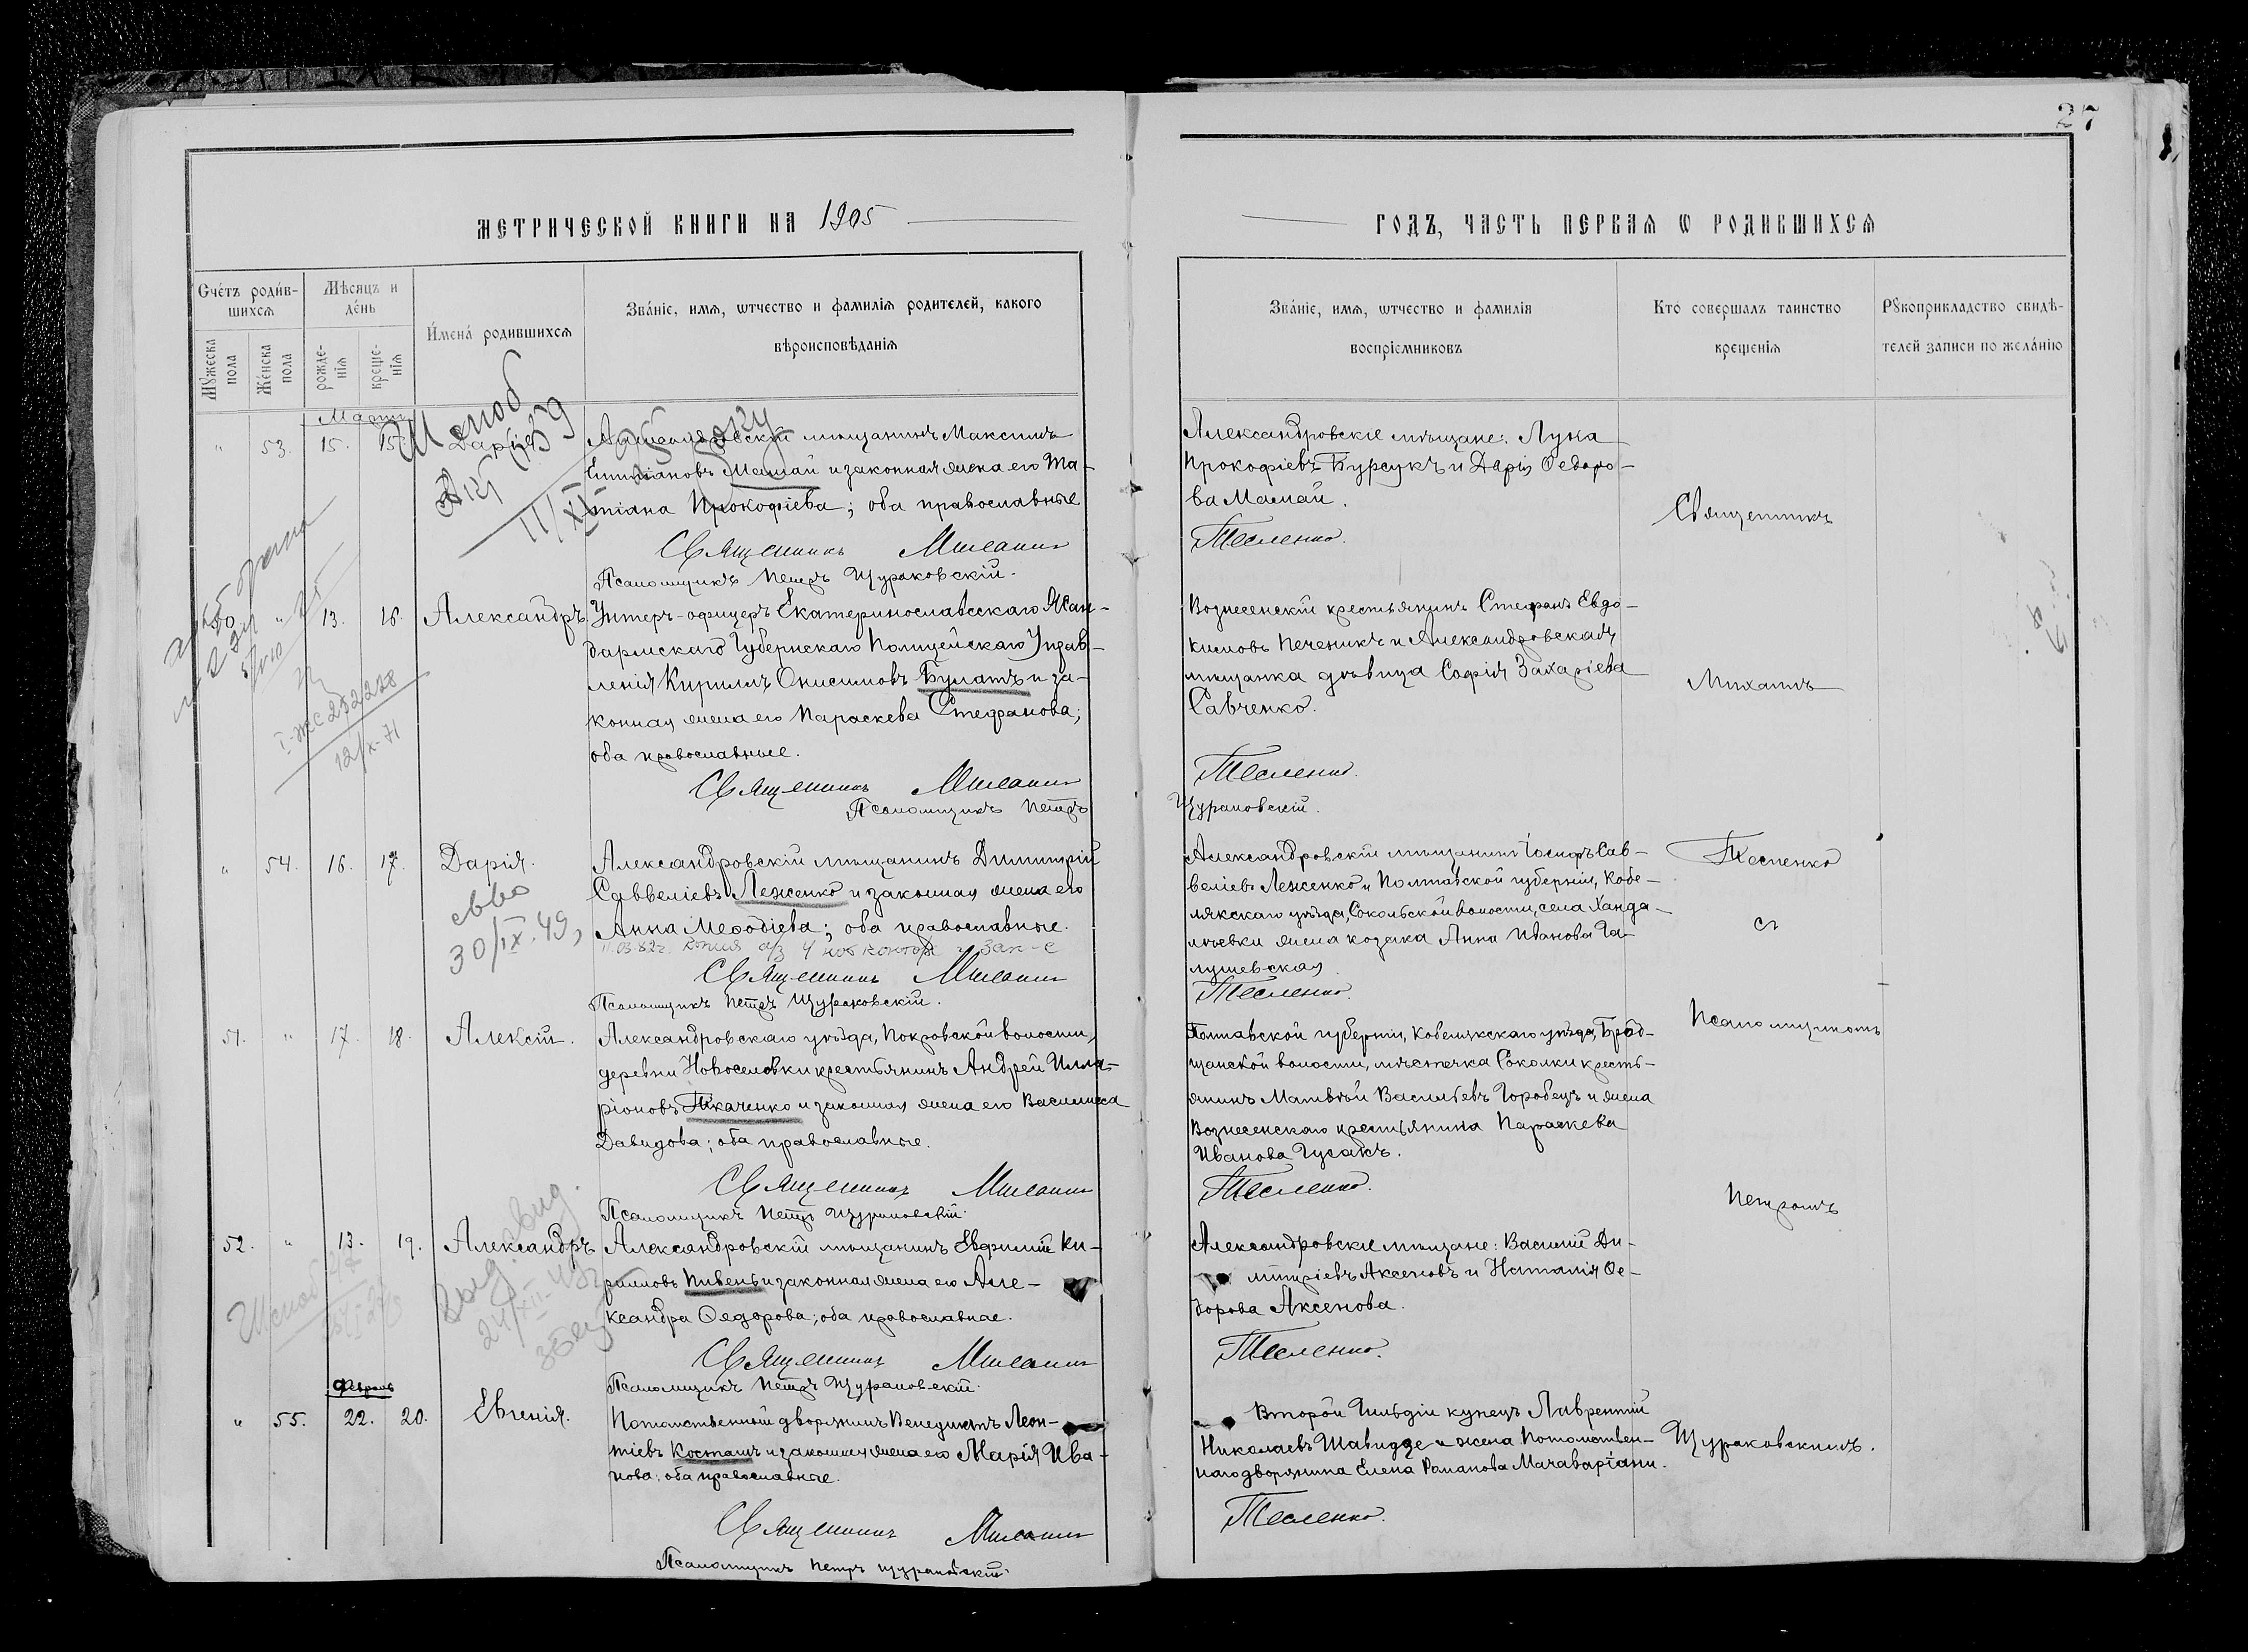 27
МЕТРИЧЕСКОЙ КНИГИ НА 1905
ГОДЪ, ЧАСТЬ ПЕРВАЯ Ѡ РОДИВШИХСЯ
Счетъ родив-
шихся
Мужеска пола
Женска пола
Мѣсяцъ и
день
рожде-
нія
креще-
нія
Имена родившихся
Званіе, имя, ѡтчество и фамилія родителей, какого
вѣроисповѣданія
Званіе, имя, ѡтчество и фамилія
воспріемниковъ
Кто совершалъ таинство
крещенія
Рукоприкладство свидѣ-
телей записи по желанію
Мартъ
" 53. 15. 15. Дарія
Александровскій мѣщанинъ Максимъ
Мамай и законная жена его Та-
тіана Прокофіева; оба православные
Священникъ Михаилъ
Псаломщикъ Петръ Щураковскій.
Александровскіе мѣщане: Лука
Прокофіевъ Бурсукъ и Дарія Ѳедоро-
ва Мамай.
Тесленко.
50 " 13. 16. Александръ
Унтеръ-офицеръ Екатеринославскаго Жан-
дармскаго Губернскаго Полицейскаго Управ-
ленія Кириллъ Онисимовъ Булатъ и за-
конная жена его Параскева Стефанова;
оба православные.
Священникъ Михаилъ
Псаломщикъ Петръ
Вознесенскій крестьянинъ Стефанъ Евдо-
кимовъ Печеникъ и Александровская
мѣщанка дѣвица Софія Захаріева
Савченко.
Тесленко.
Щураковскій.
I-ЖС 252228
12/X-71
" 54. 16. 17. Дарія.
Александровскій мѣщанинъ Димитрій
Савеліевъ Леженко и законная жена его
Анна Меѳодіева; оба православные.
Священникъ Михаилъ
Псаломщикъ Петръ Щураковскій.
30/IX.49
Александровскій мѣщанинъ Іосифъ Сав-
веліевъ Леженко и Полтавской губерніи, Кобе-
лякскаго уѣзда, Сокольской волости, села Ханда-
лѣевки жена козака Анна Иванова Га-
лушевская
Тесленко.
51. " 17. 18. Алексій.
Александровскаго уѣзда, Покровской волости,
деревни Новоселовки крестьянинъ Андрей Илла-
ріоновъ Ткаченко и законная жена его Василиса
Давидова; оба православные.
Священникъ Михаилъ
Псаломщикъ Петръ Щураковскій.
Полтавской губерніи, Кобелякскаго уѣзда, Брод-
щанской волости, мѣстечка Соколки кресть-
янинъ Матвѣй Васильевъ Горобецъ и жена
Вознесенскаго крестьянина Параскева
Иванова Гусакъ.
Тесленко.
52. " 13. 19. Александръ
Александровскій мѣщанинъ Евфимій Ки-
рилловъ Пивень и законная жена его Але-
ксандра Ѳедорова; оба православные.
Священникъ Михаилъ
Псаломщикъ Петръ Щураковскій.
Александровскіе мѣщане: Василій Ди-
митріевъ Аксеновъ и Наталія Ѳе-
дорова Аксенова.
Тесленко.
Февраль
" 55. 22. 20. Евгенія.
Потомственный дворянинъ Венедиктъ Леон-
тіевъ Косташъ и законная жена его Марія Ива-
нова; оба православные.
Священникъ Михаилъ
Псаломщикъ Петръ Щураковскій.
Второй Гильдіи купецъ Лаврентій
Николаевъ Шавидзе и жена потомствен-
наго дворянина Елена Романова Мачаваріани.
Тесленко.
Священникъ
Михаилъ
Тесленко
съ
Псаломщикомъ
Петромъ
Щураковскимъ.